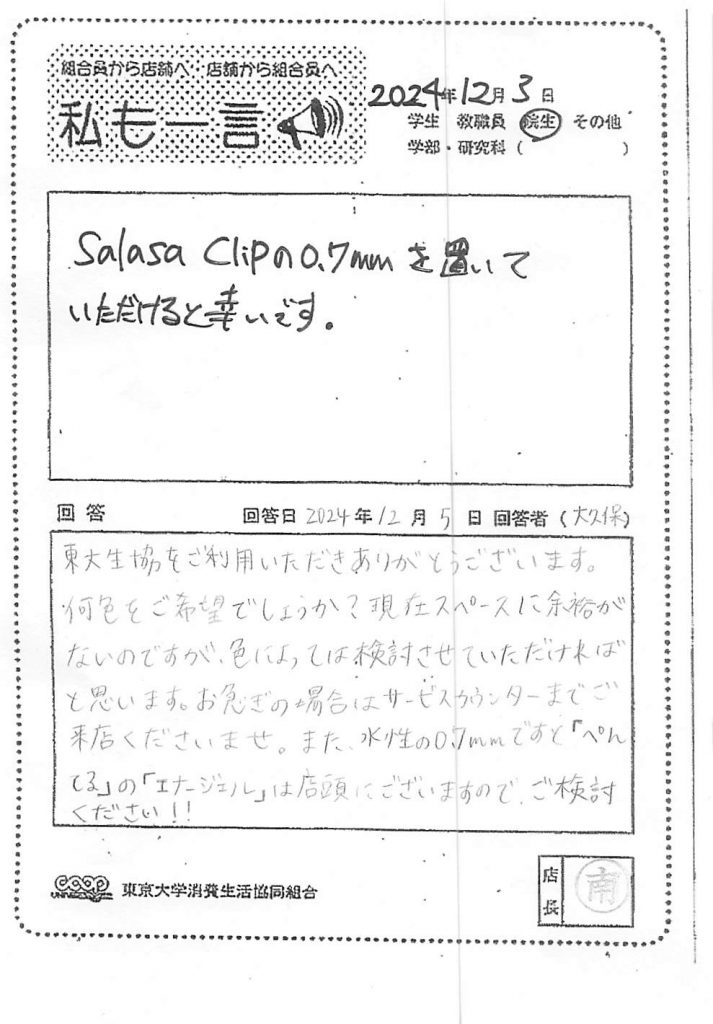 組合員から店舗へ・店舗から組合員へ
私も一言
2024年12月3日
学生 教職員 院生 その他
学部・研究科( )
Salasa Clipの0.7mmを置いて
いただけると幸いです。
回答 回答日 2024年12月5日 回答者(大久保)
東大生協をご利用いただきありがとうございます。
何色をご希望でしょうか?現在スペースに余裕が
ないのですが、色によっては検討させていただければ
と思います。お急ぎの場合はサービスカウンターまでご
来店くださいませ。また、水性の0.7mmですと「ぺん
てる」の「エナージェル」は店頭にございますので、ご検討
ください!!
coop 東京大学消費生活協同組合
店長
南